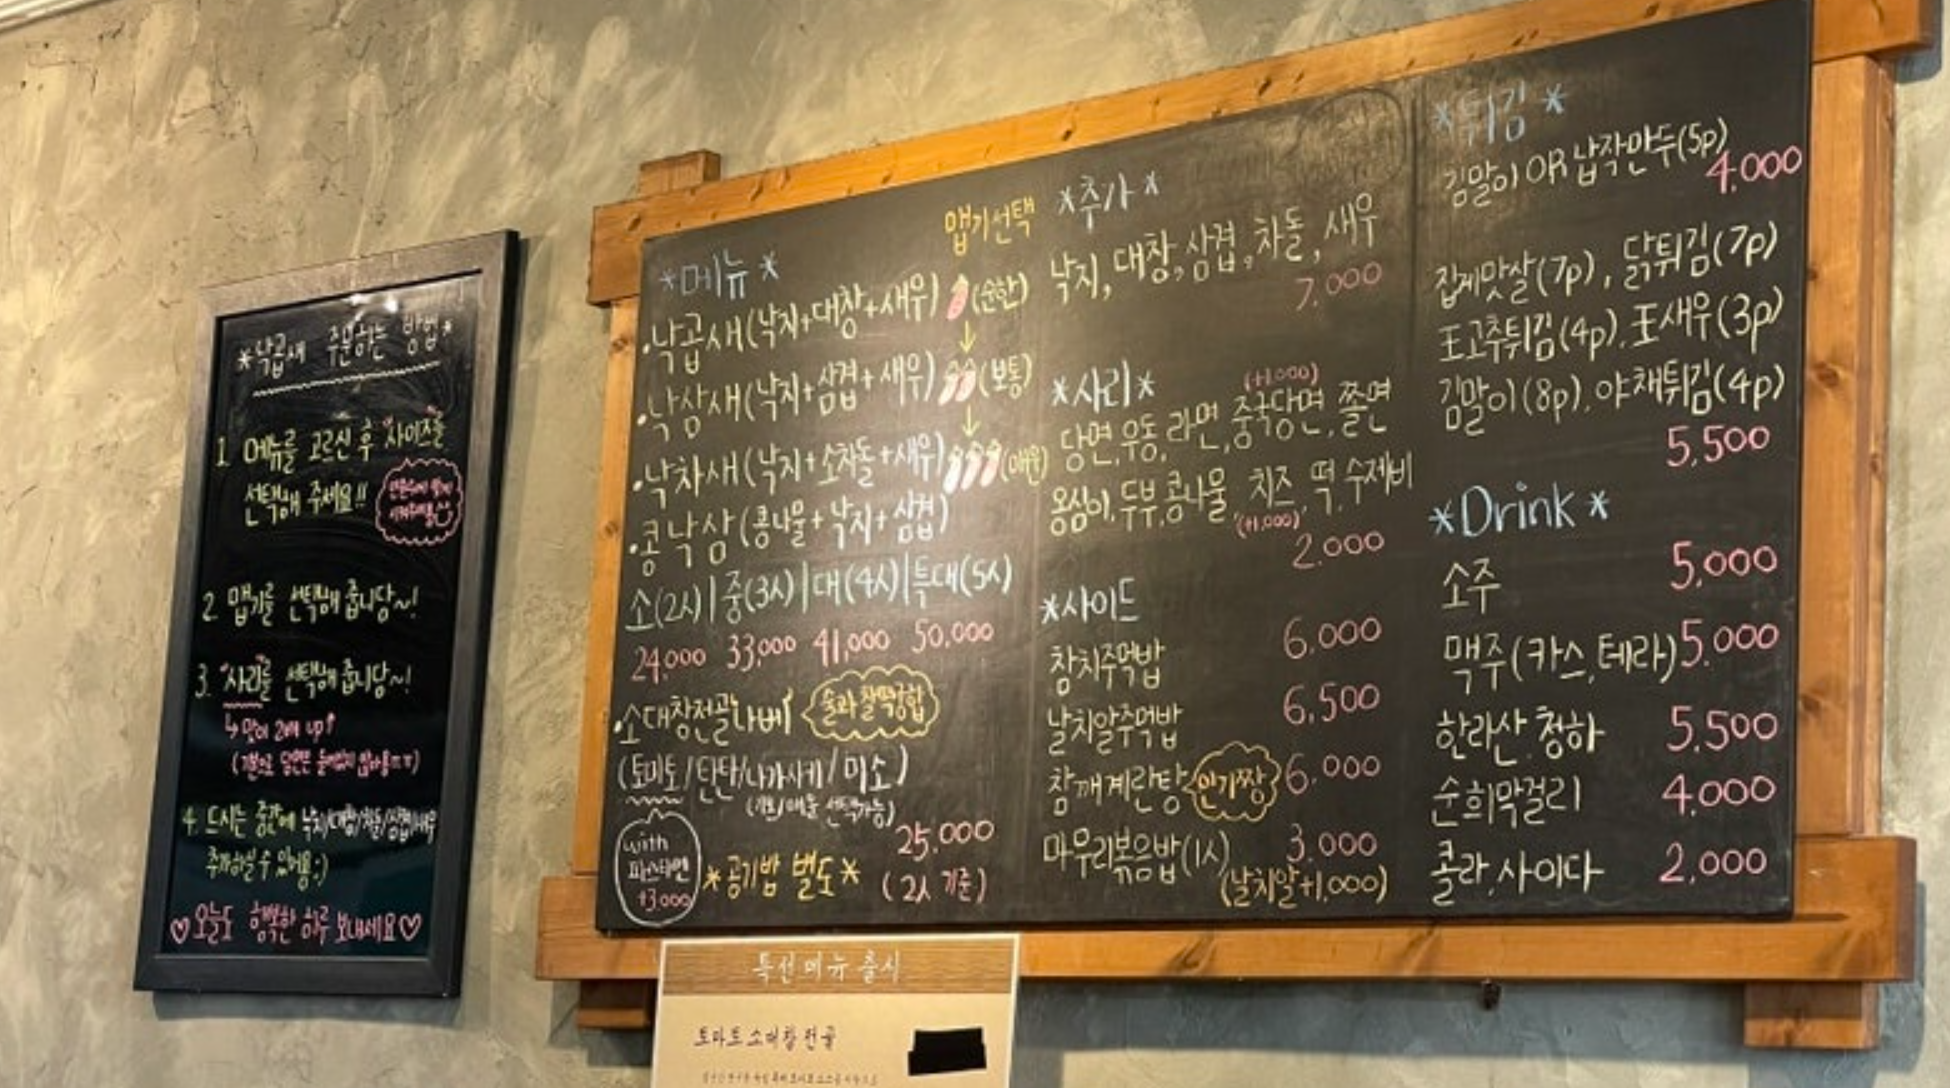 *낙곱새 주문하는 방법*
1. 메뉴를 고르신 후 사이즈를
선택해 주세요!!
2. 맵기를 선택해 줍니당~!
3. 사리를 선택해 줍니당~!
↳ 맛이 2배 up↑
(기본으로 당면은 들어있지 않아용ㅠㅠ)
4. 드시는 중간에 낙지/대창/차돌/삼겹/새우
추가하실 수 있어용:)
♡오늘도 행복한 하루 보내세요♡
*메뉴*
맵기선택
·낙곱새(낙지+대창+새우) (순한)
·낙삼새(낙지+삼겹+새우) (보통)
·낙차새(낙지+소차돌+새우) (매운)
·콩낙삼(콩나물+낙지+삼겹)
소(2人)|중(3人)|대(4人)|특대(5人)
24,000 33,000 41,000 50,000
·소대창전골나베 술과 찰떡궁합
(토마토/탄탄/나가사키/미소)
(기본/매운 선택가능)
25,000
with
파스타면
+3,000
*공기밥 별도* (2人 기준)
*추가*
낙지, 대창, 삼겹, 차돌, 새우
7,000
*사리*
(+1,000)
당면, 우동, 라면, 중국당면, 쫄면
옹심이, 두부, 콩나물, 치즈, 떡, 수제비
(+1,000)
2,000
*사이드
참치주먹밥 6,000
날치알주먹밥 6,500
참깨계란탕 인기짱 6,000
마무리볶음밥(1人) 3,000
(날치알+1,000)
*튀김*
김말이 OR 납작만두(5p)
4,000
집게맛살(7p), 닭튀김(7p)
王고추튀김(4p), 王새우(3p)
김말이(8p), 야채튀김(4p)
5,500
*Drink*
소주 5,000
맥주(카스,테라) 5,000
한라산, 청하 5,500
순희막걸리 4,000
콜라, 사이다 2,000
특선메뉴 출시
토마토 소대창 전골